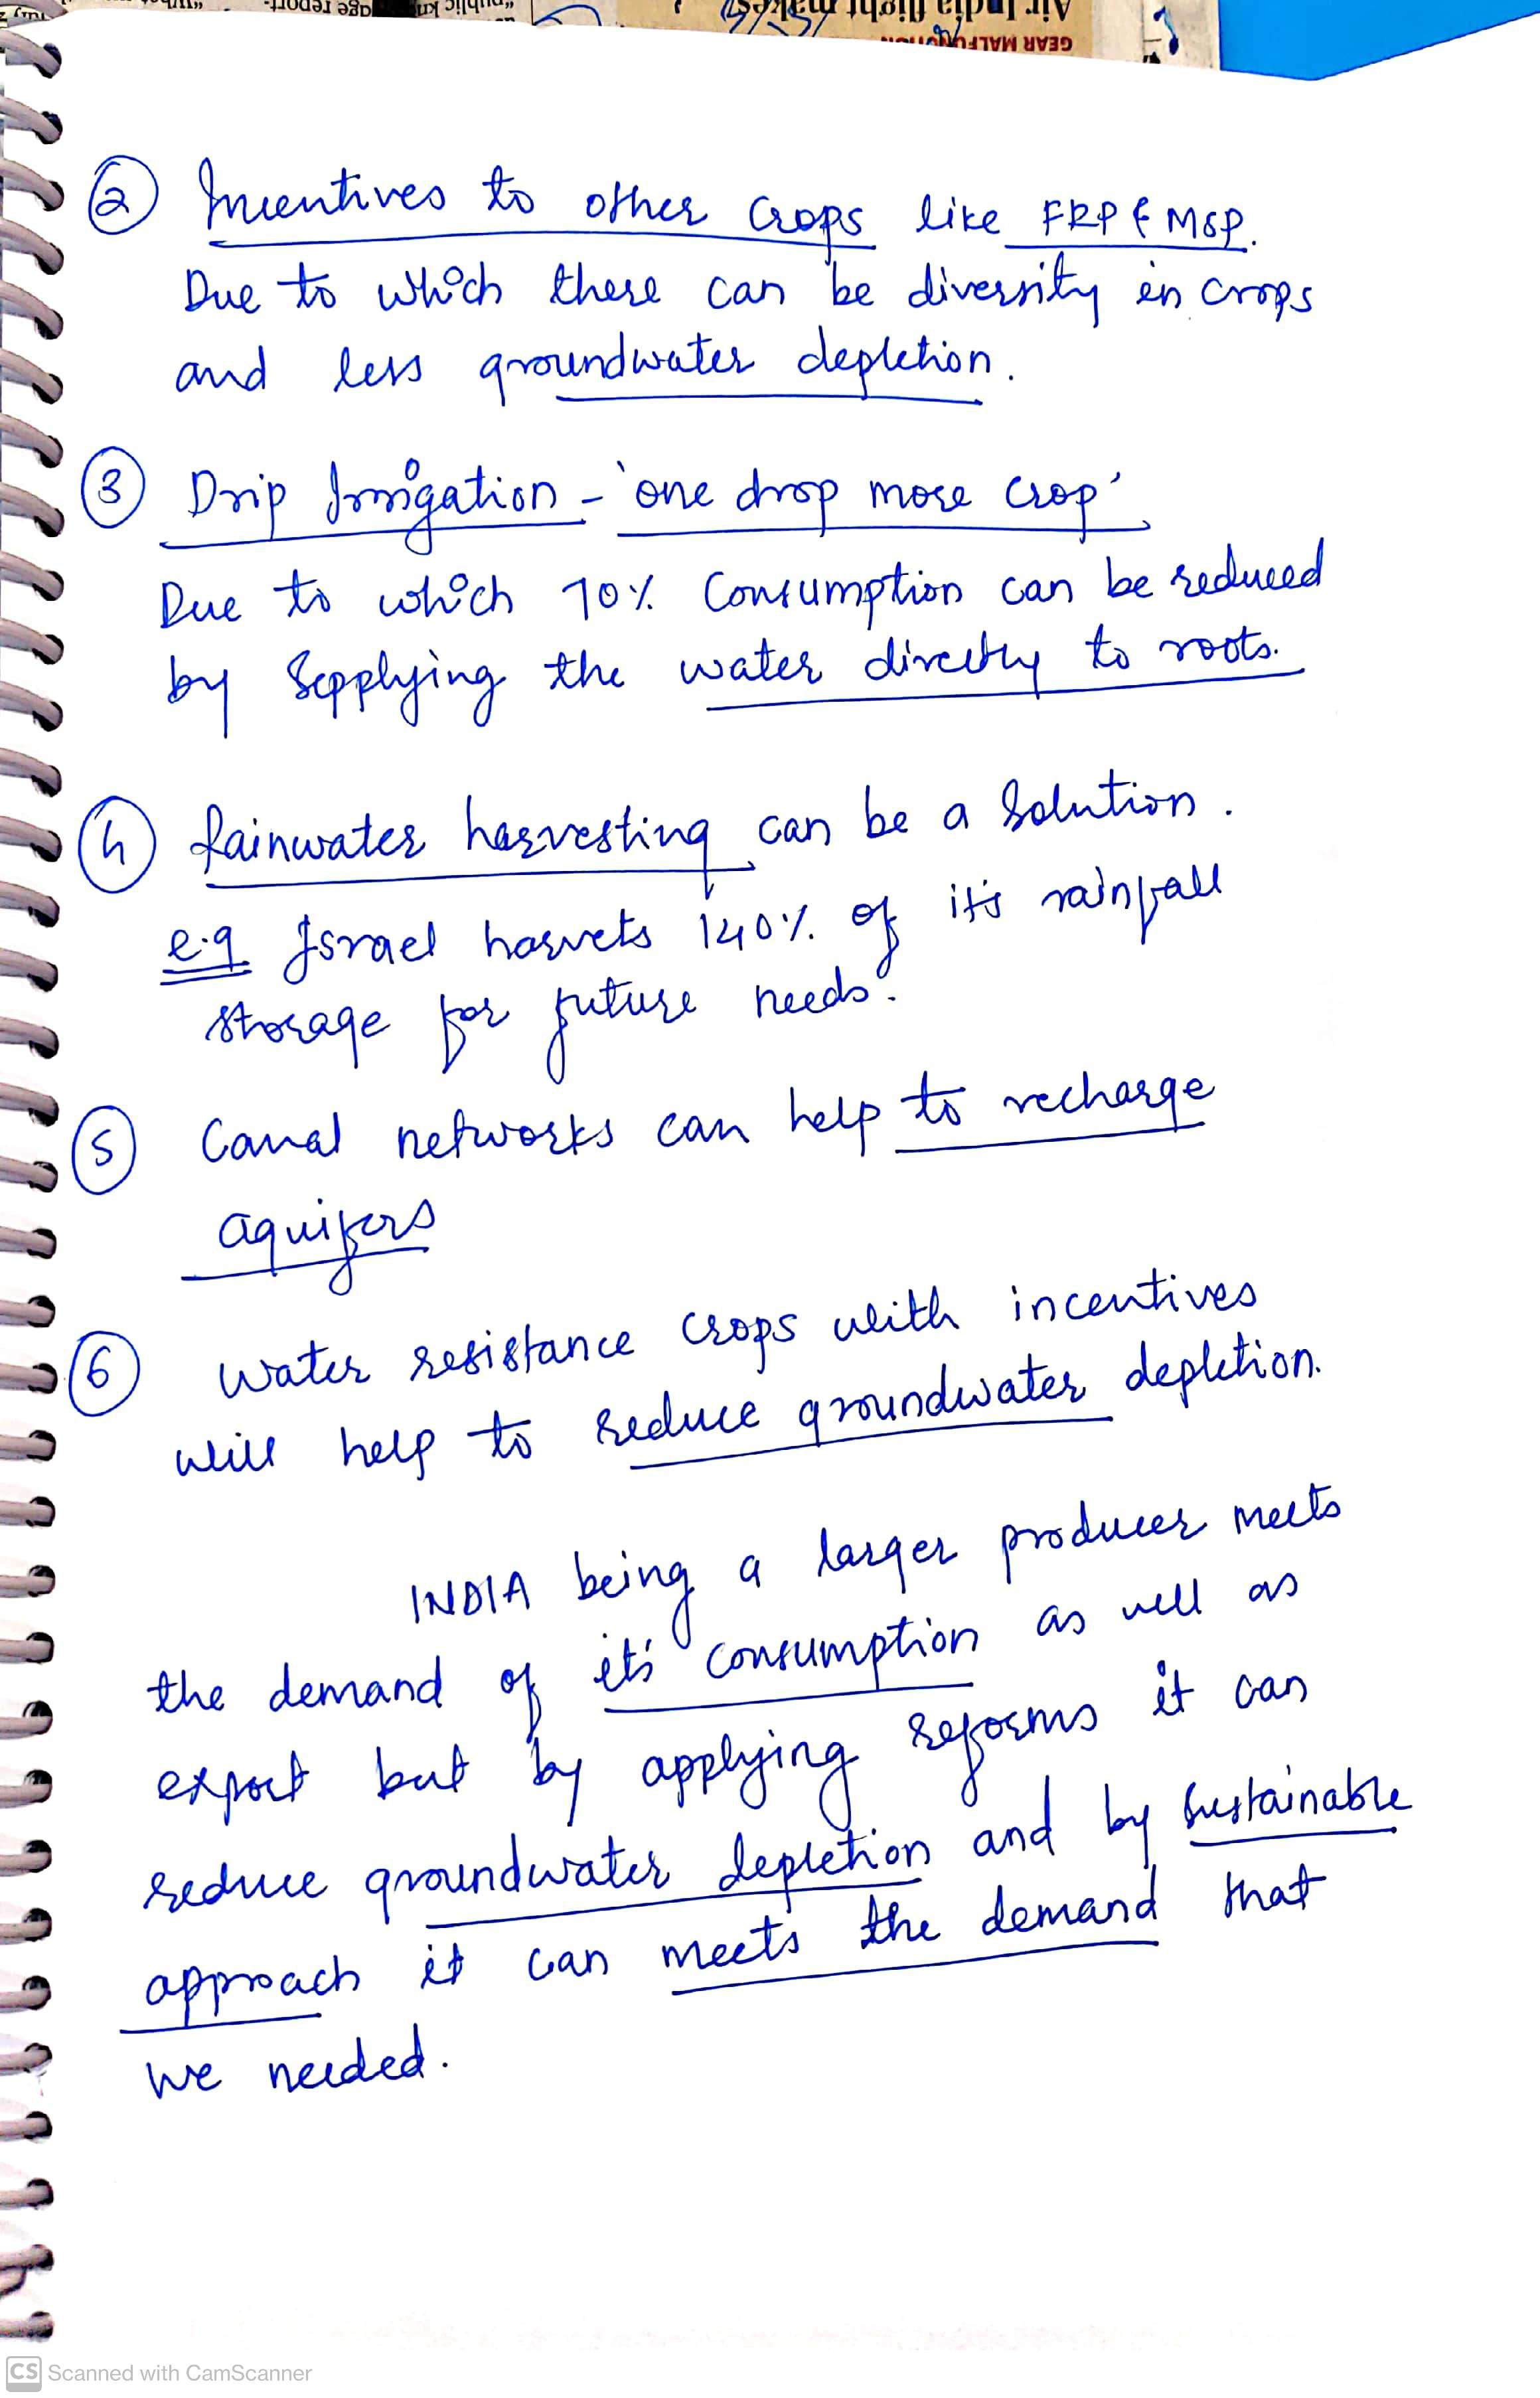 "public kn    age report-
Air India flight makes
GEAR MALFUNCTION
② Incentives to other crops like FRP & MSP.
Due to which there can be diversity in crops
and less groundwater depletion.
③ Drip Irrigation - 'one drop more crop'
Due to which 70% Consumption can be reduced
by Sepplying the water directly to roots.
④ Rainwater harvesting can be a Solution.
e.g Israel harvets 140% of it's rainfall
storage for future needs.
⑤ Canal networks can help to recharge
aquifers
⑥ Water resistance crops with incentives
will help to reduce groundwater depletion.
INDIA being a larger producer meets
the demand of it's consumption as well as
export but by applying reforms it can
reduce groundwater depletion and by sustainable
approach it can meets the demand that
we needed.
CS Scanned with CamScanner